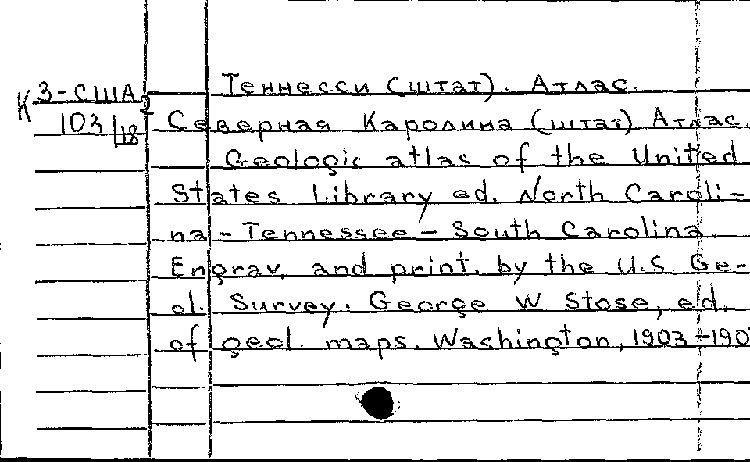 Теннесси (штат). Атлас.
К 3-США2
103/18
Северная Каролина (штат) Атлас.
Geologic atlas of the United
States Library ed. North Caroli-
na - Tennessee - South Carolina
Engrav. and print. by the U.S Ge-
ol. Survey. George W Stose, ed.
of geol. maps. Washington, 1903-190